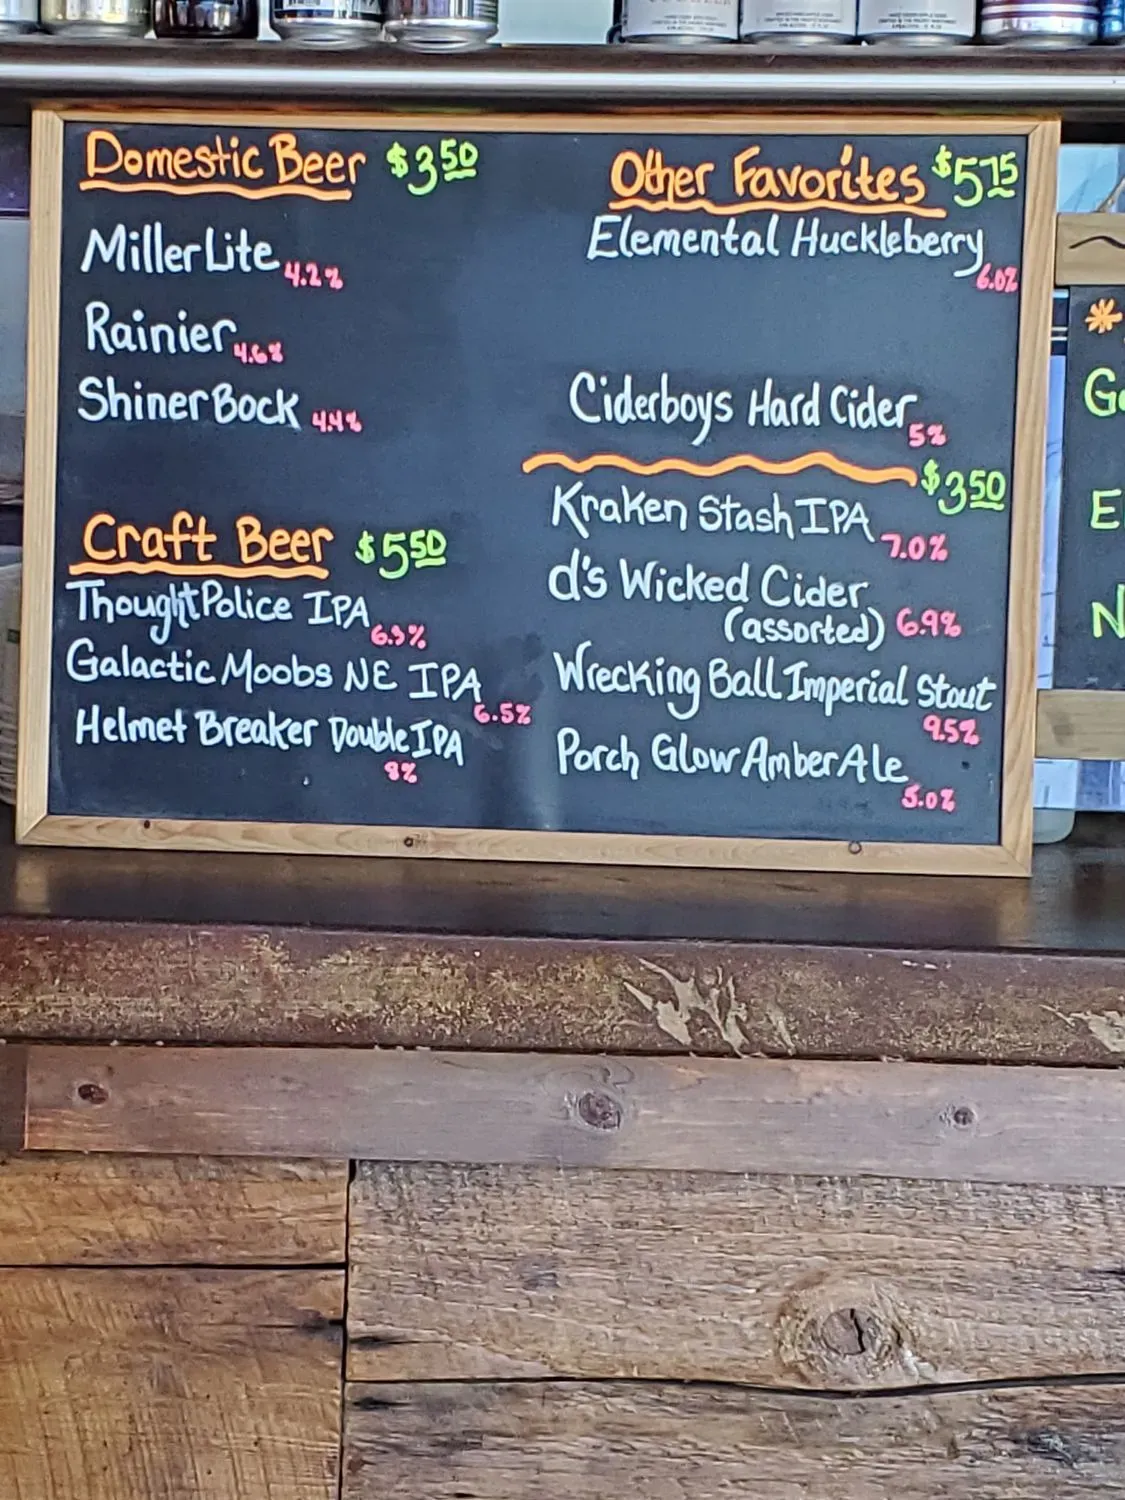 Domestic Beer $3.50
Miller Lite 4.2%
Rainier 4.6%
Shiner Bock 4.4%
Craft Beer $5.50
Thought Police IPA
6.9%
Galactic Moobs NE IPA
6.5%
Helmet Breaker Double IPA
8%
Other Favorites $5.75
Elemental Huckleberry
6.0%
Ciderboys Hard Cider
5%
$3.50
Kraken Stash IPA
7.0%
d's Wicked Cider
(assorted) 6.9%
Wrecking Ball Imperial Stout
9.5%
Porch Glow Amber Ale
5.0%
*
G
E
N